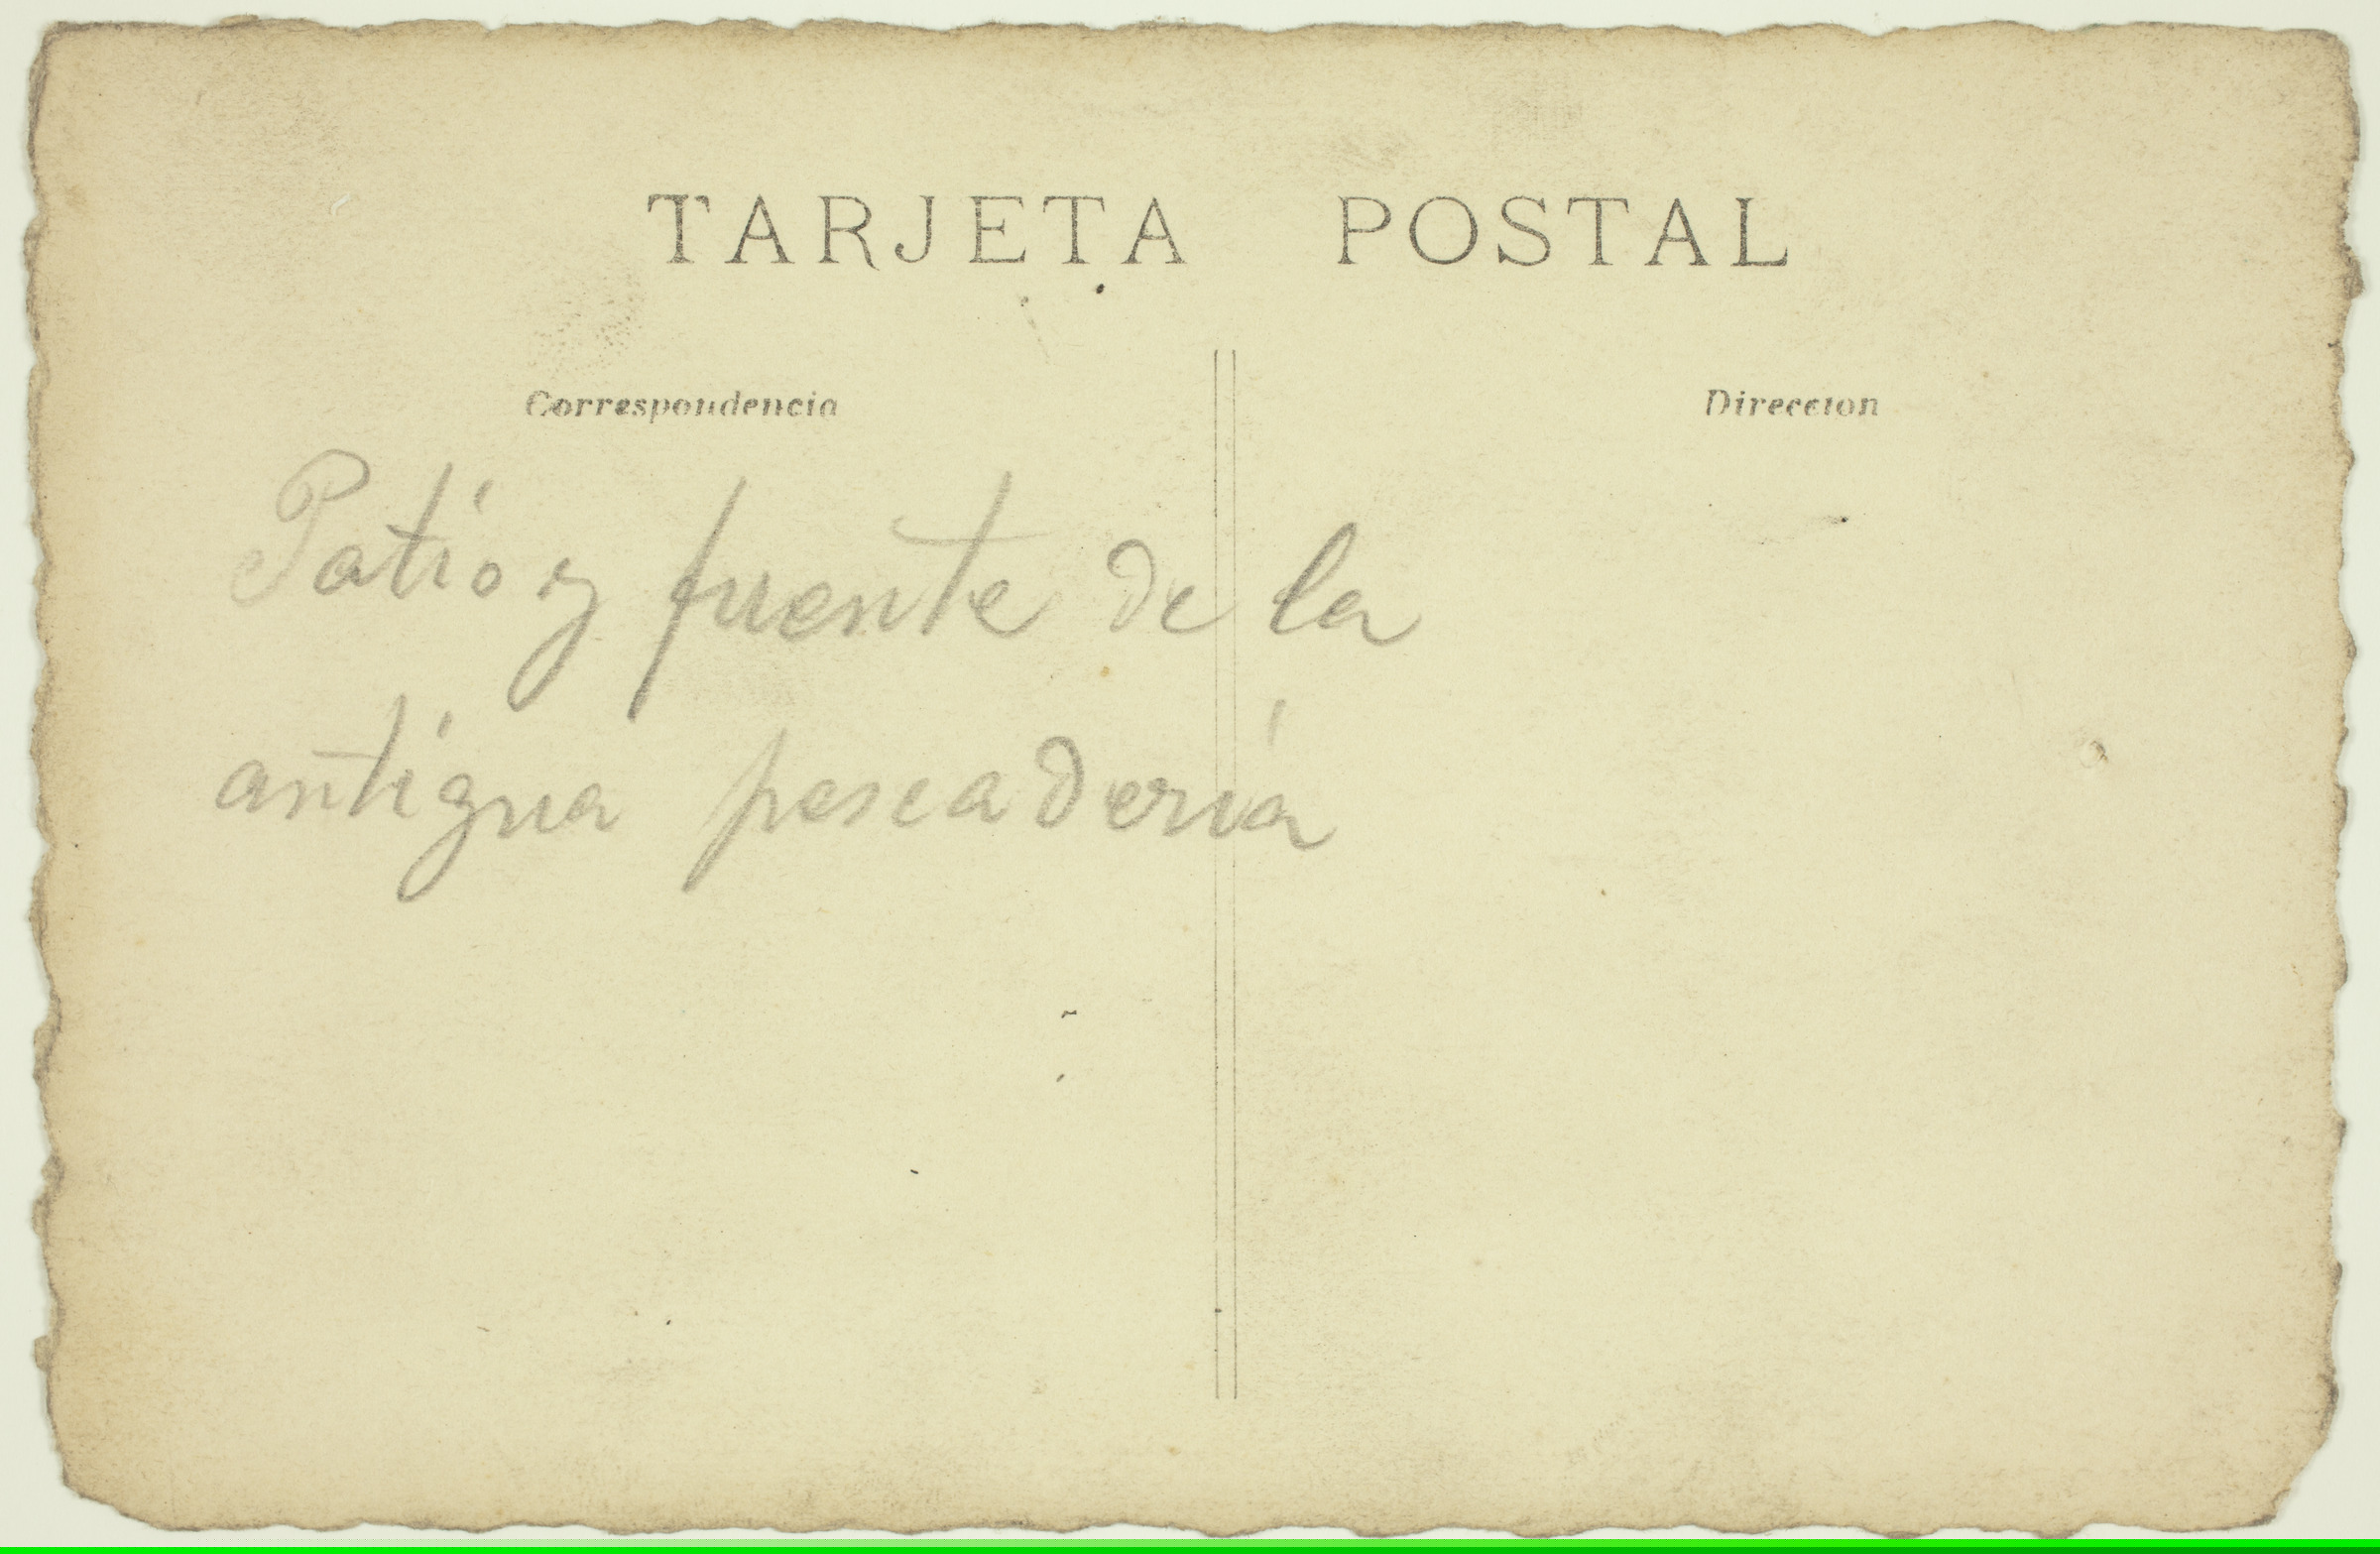 TARJETA POSTAL
Correspondencia
Direccion
Patio y fuente de la
antigua pescadería